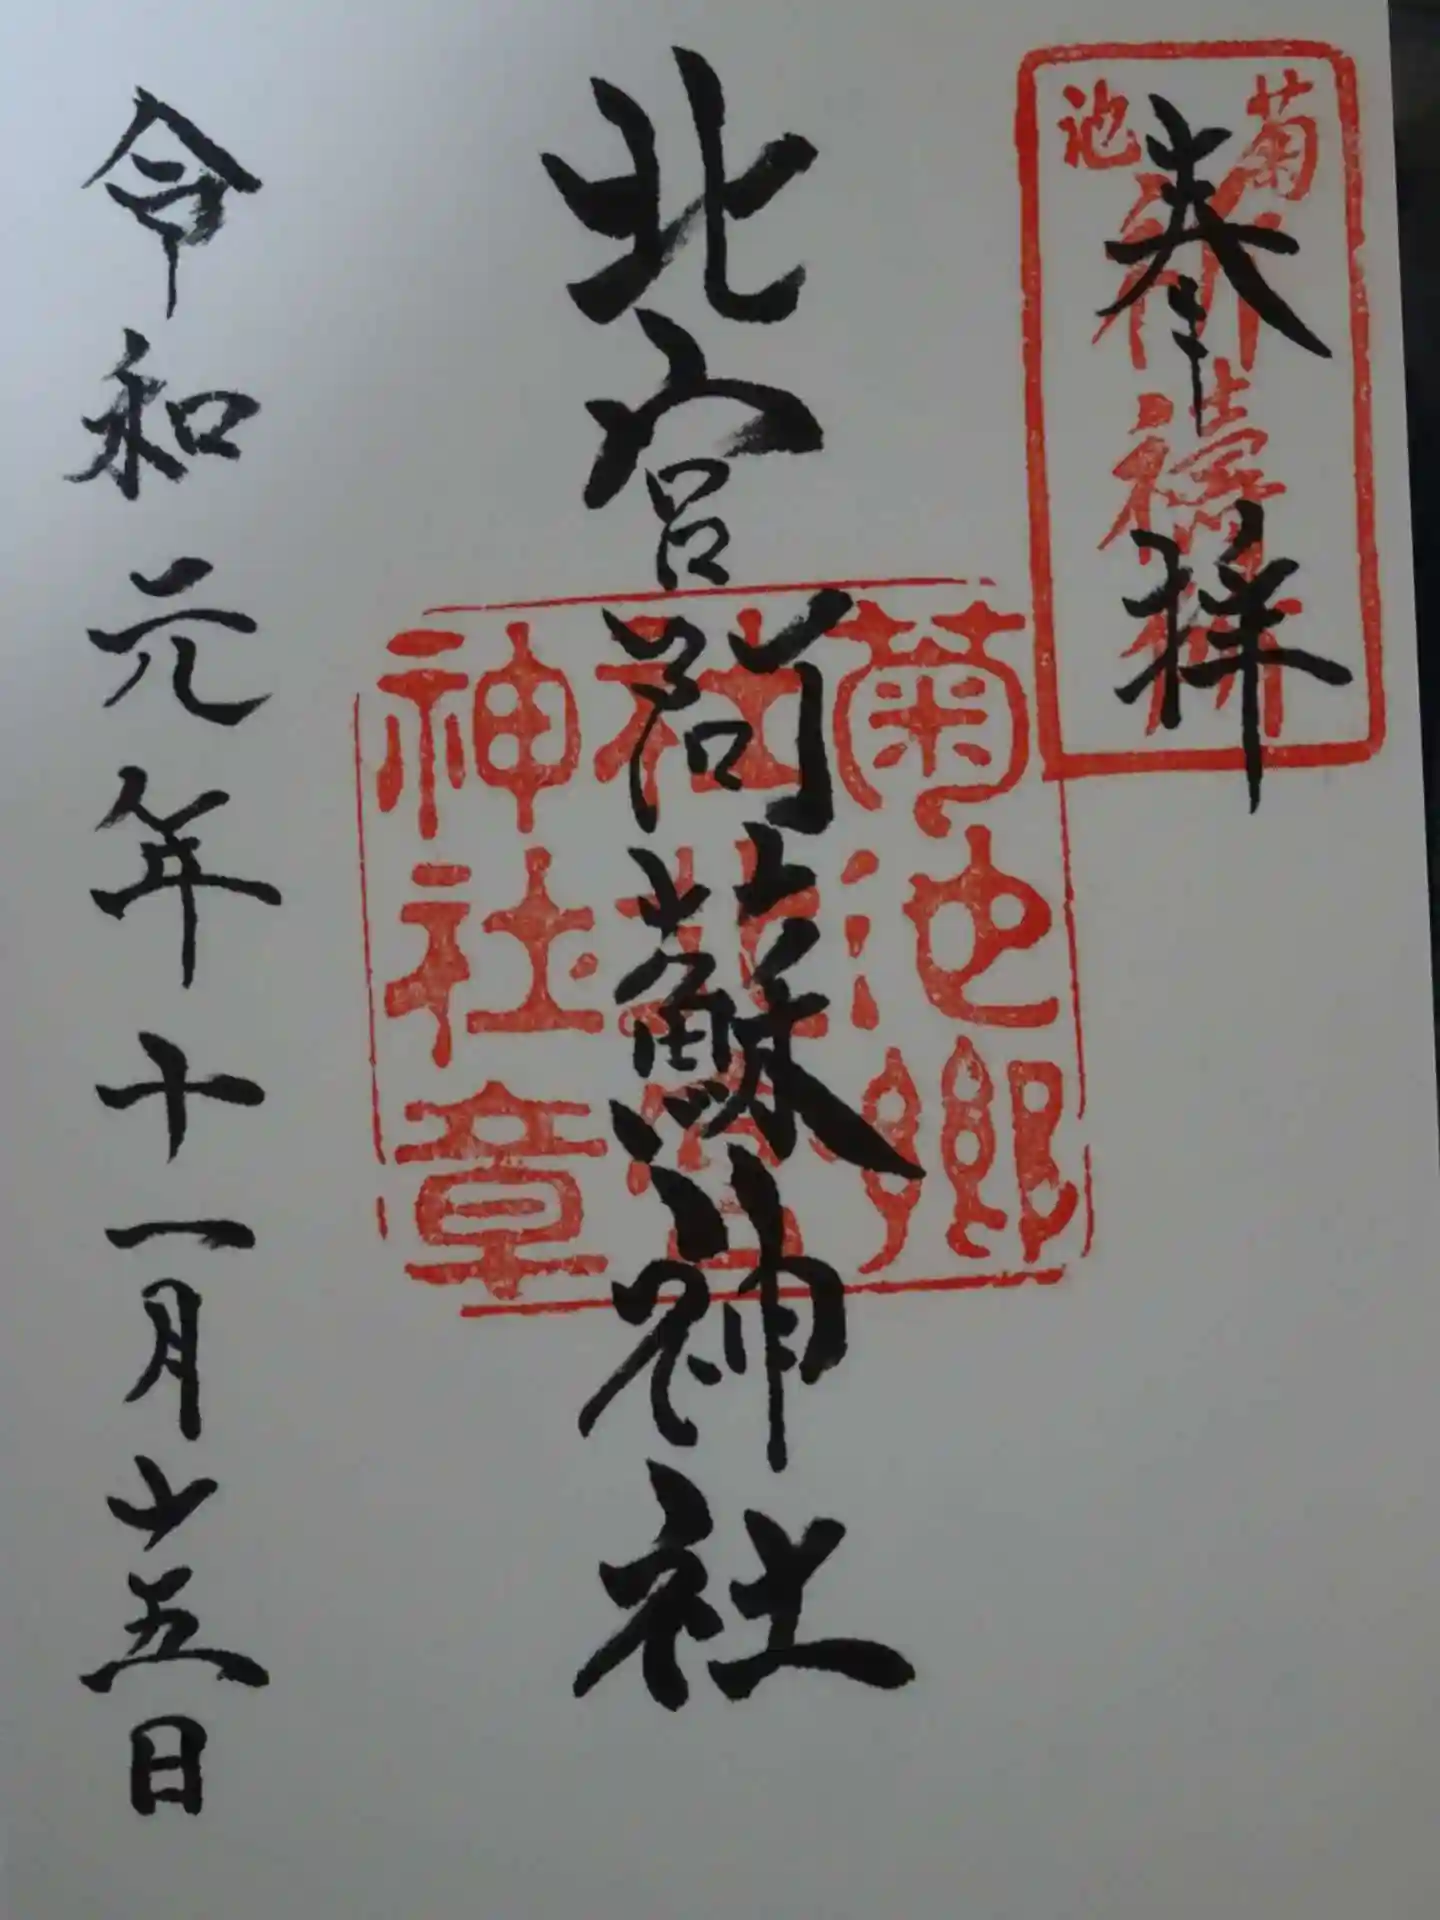 奉拝
菊池
祈禱
北宮阿蘇神社
菊池郷
社北宮
神社章
令和元年十一月廿五日